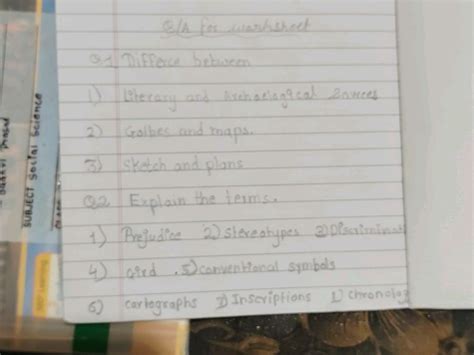 Q/A for worksheet
Q1 Differce between
1) Literary and Archaelogical Sources
2) Golbes and maps.
3) Sketch and plans
Q2 Explain the terms.
1) Prejudice 2) Stereotypes 3) Discriminati
4) Gird . 5) conventional symbols
6) cartographs 7) Inscriptions 1) chronolog
SUBJECT Social Science